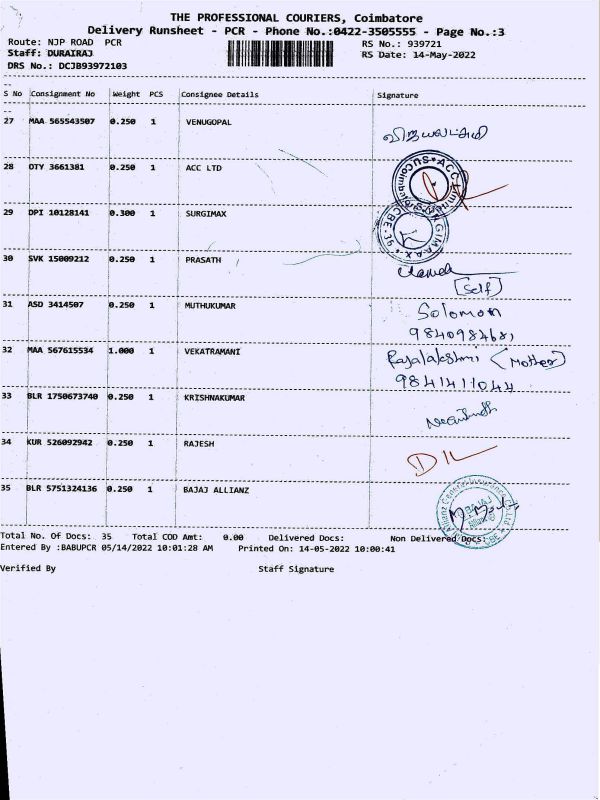 THE PROFESSIONAL COURIERS, Coimbatore
Delivery Runsheet - PCR - Phone No.:0422-3505555 - Page No.:3
Route: NJP ROAD PCR
RS No.: 939721
Staff: DURAIRAJ
RS Date: 14-May-2022
DRS No.: DCJB93972103
S No Consignment No Weight PCS Consignee Details Signature
27 MAA 565543507 0.250 1 VENUGOPAL
விஜயலட்சுமி
28 OTY 3661381 0.250 1 ACC LTD
29 DPI 10128141 0.300 1 SURGIMAX
30 SVK 15009212 0.250 1 PRASATH
[Self]
31 ASD 3414507 0.250 1 MUTHUKUMAR Solomon
9840984681
32 MAA 567615534 1.000 1 VEKATRAMANI Rajalakshmi (Mother)
9841411044
33 BLR 1750673740 0.250 1 KRISHNAKUMAR
34 KUR 526092942 0.250 1 RAJESH
35 BLR 5751324136 0.250 1 BAJAJ ALLIANZ
Total No. Of Docs: 35 Total COD Amt: 0.00 Delivered Docs: Non Delivered Docs:
Entered By :BABUPCR 05/14/2022 10:01:28 AM Printed On: 14-05-2022 10:00:41
Verified By Staff Signature